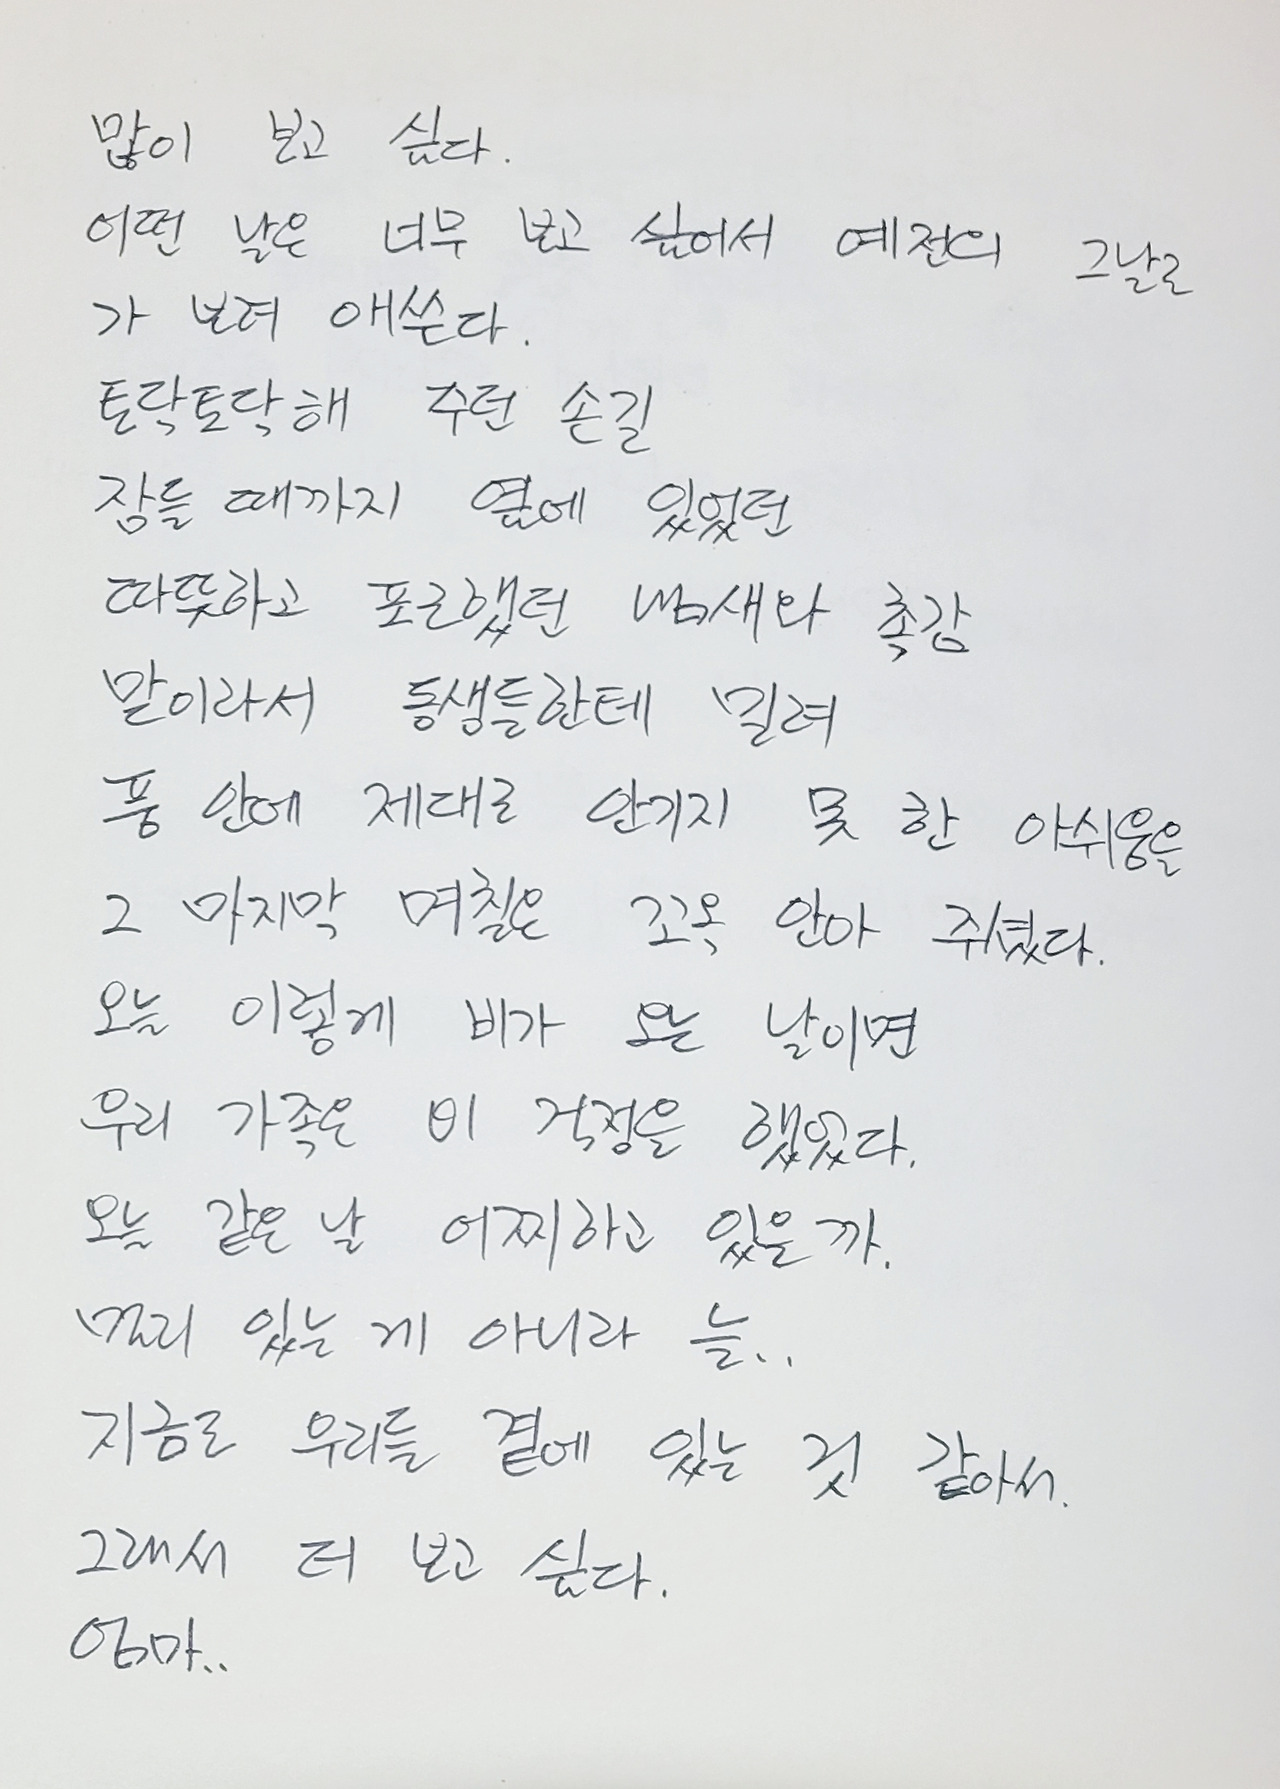 많이 보고 싶다.
어떤 날은 너무 보고 싶어서 예전의 그날로
가 보려 애쓴다.
토닥토닥해 주던 손길
잠들 때까지 옆에 있었던
따뜻하고 포근했던 냄새와 촉감
맏이라서 동생들한테 밀려
품 안에 제대로 안기지 못 한 아쉬움을
그 마지막 며칠은 꼬옥 안아 쥐셨다.
오늘 이렇게 비가 오는 날이면
우리 가족은 비 걱정을 했었다.
오늘 같은 날 어찌하고 있을까.
멀리 있는 게 아니라 늘..
지금도 우리들 곁에 있는 것 같아서.
그래서 더 보고 싶다.
엄마..